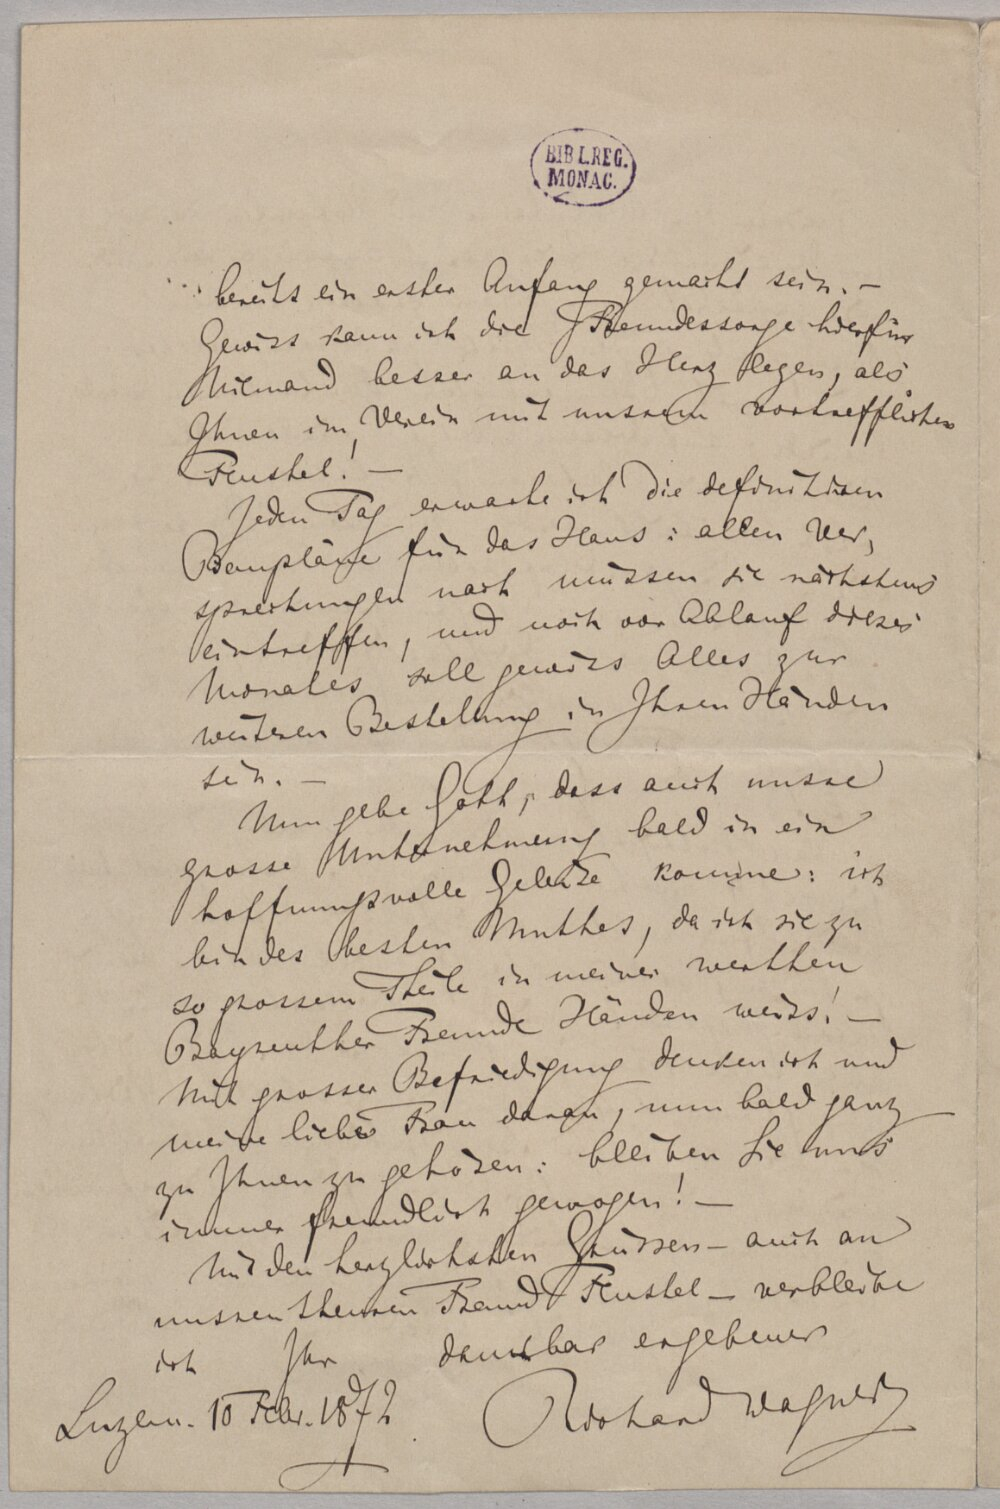 BIBL.REG.
MONAC.
bereits ein erster Anfang gemacht sein. –
Gewiss kann ich die Freundessorge hierfür
Niemand besser an das Herz legen, als
Ihnen im Verein mit unsrem vortrefflichen
Feustel! –
Jeden Tag erwarte ich die definitiven
Baupläne für das Haus: allen Ver,
sprechungen nach müssen sie nächstens
eintreffen, und noch vor Ablauf dieses
Monates soll gewiss Alles zur
weiteren Bestellung in Ihren Händen
sein. –
Nun gebe Gott, dass auch unsre
grosse Unternehmung bald in ein
hoffnungsvolle Geleise komme: ich
bin des besten Muthes, da ich sie zu
so grossem Theile in meiner werthen
Bayreuther Freunde Händen weiss! –
Mit grosser Befriedigung denken ich und
meine liebe Frau daran, nun bald ganz
zu Ihnen zu gehören: bleiben Sie uns
immer freundlich gewogen! –
Mit den herzlichsten Grüssen – auch an
unsren theuren Freund Feustel – verbleibe
ich Ihr dankbar ergebener
Luzern. 10 Febr. 1872 Richard Wagner